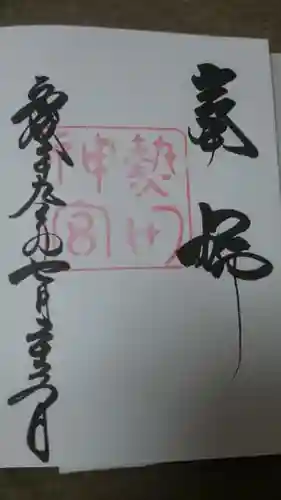 奉拝
熱田
神宮
平成二十九年七月二十六日